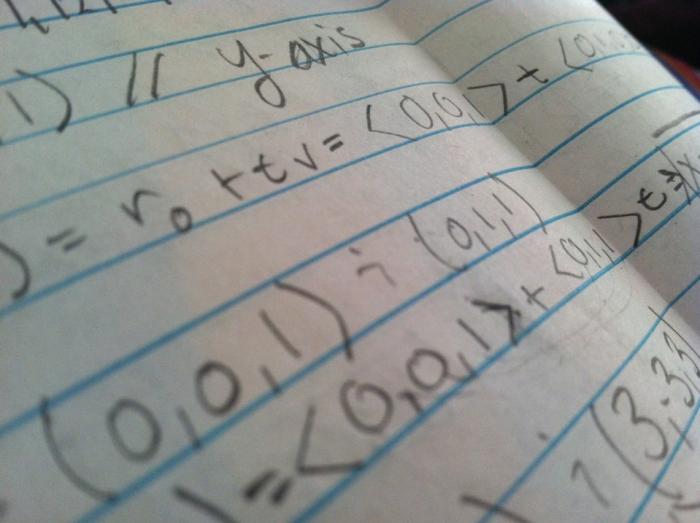 1) // y-axis
) = r₀ + t v = <0,0,1> + <0,1,0
(0,0,1) ; (0,1,1)
) = <0,0,1> + <0,1,1> t ⇒
; (3,-3,3)